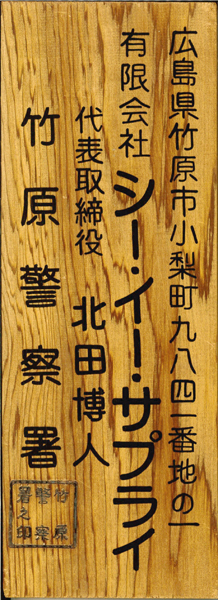 広島県竹原市小梨町九八四一番地の一
有限会社 シー・イー・サプライ
代表取締役 北田博人
竹原警察署
竹原警察署之印